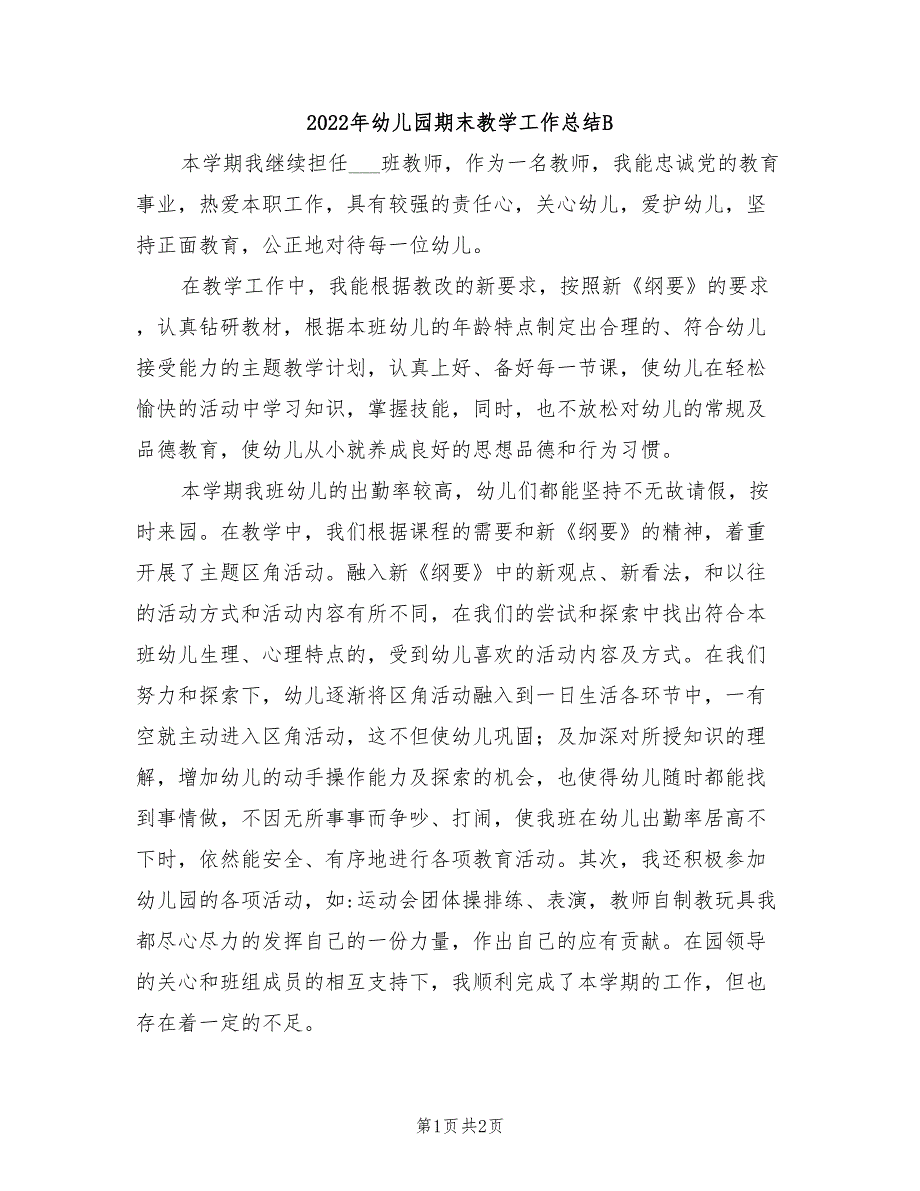 2022年幼儿园期末教学工作总结B
本学期我继续担任___班教师，作为一名教师，我能忠诚党的教育
事业，热爱本职工作，具有较强的责任心，关心幼儿，爱护幼儿，坚
持正面教育，公正地对待每一位幼儿。
在教学工作中，我能根据教改的新要求，按照新《纲要》的要求
，认真钻研教材，根据本班幼儿的年龄特点制定出合理的、符合幼儿
接受能力的主题教学计划，认真上好、备好每一节课，使幼儿在轻松
愉快的活动中学习知识，掌握技能，同时，也不放松对幼儿的常规及
品德教育，使幼儿从小就养成良好的思想品德和行为习惯。
本学期我班幼儿的出勤率较高，幼儿们都能坚持不无故请假，按
时来园。在教学中，我们根据课程的需要和新《纲要》的精神，着重
开展了主题区角活动。融入新《纲要》中的新观点、新看法，和以往
的活动方式和活动内容有所不同，在我们的尝试和探索中找出符合本
班幼儿生理、心理特点的，受到幼儿喜欢的活动内容及方式。在我们
努力和探索下，幼儿逐渐将区角活动融入到一日生活各环节中，一有
空就主动进入区角活动，这不但使幼儿巩固；及加深对所授知识的理
解，增加幼儿的动手操作能力及探索的机会，也使得幼儿随时都能找
到事情做，不因无所事事而争吵、打闹，使我班在幼儿出勤率居高不
下时，依然能安全、有序地进行各项教育活动。其次，我还积极参加
幼儿园的各项活动，如:运动会团体操排练、表演，教师自制教玩具我
都尽心尽力的发挥自己的一份力量，作出自己的应有贡献。在园领导
的关心和班组成员的相互支持下，我顺利完成了本学期的工作，但也
存在着一定的不足。
第1页 共2页